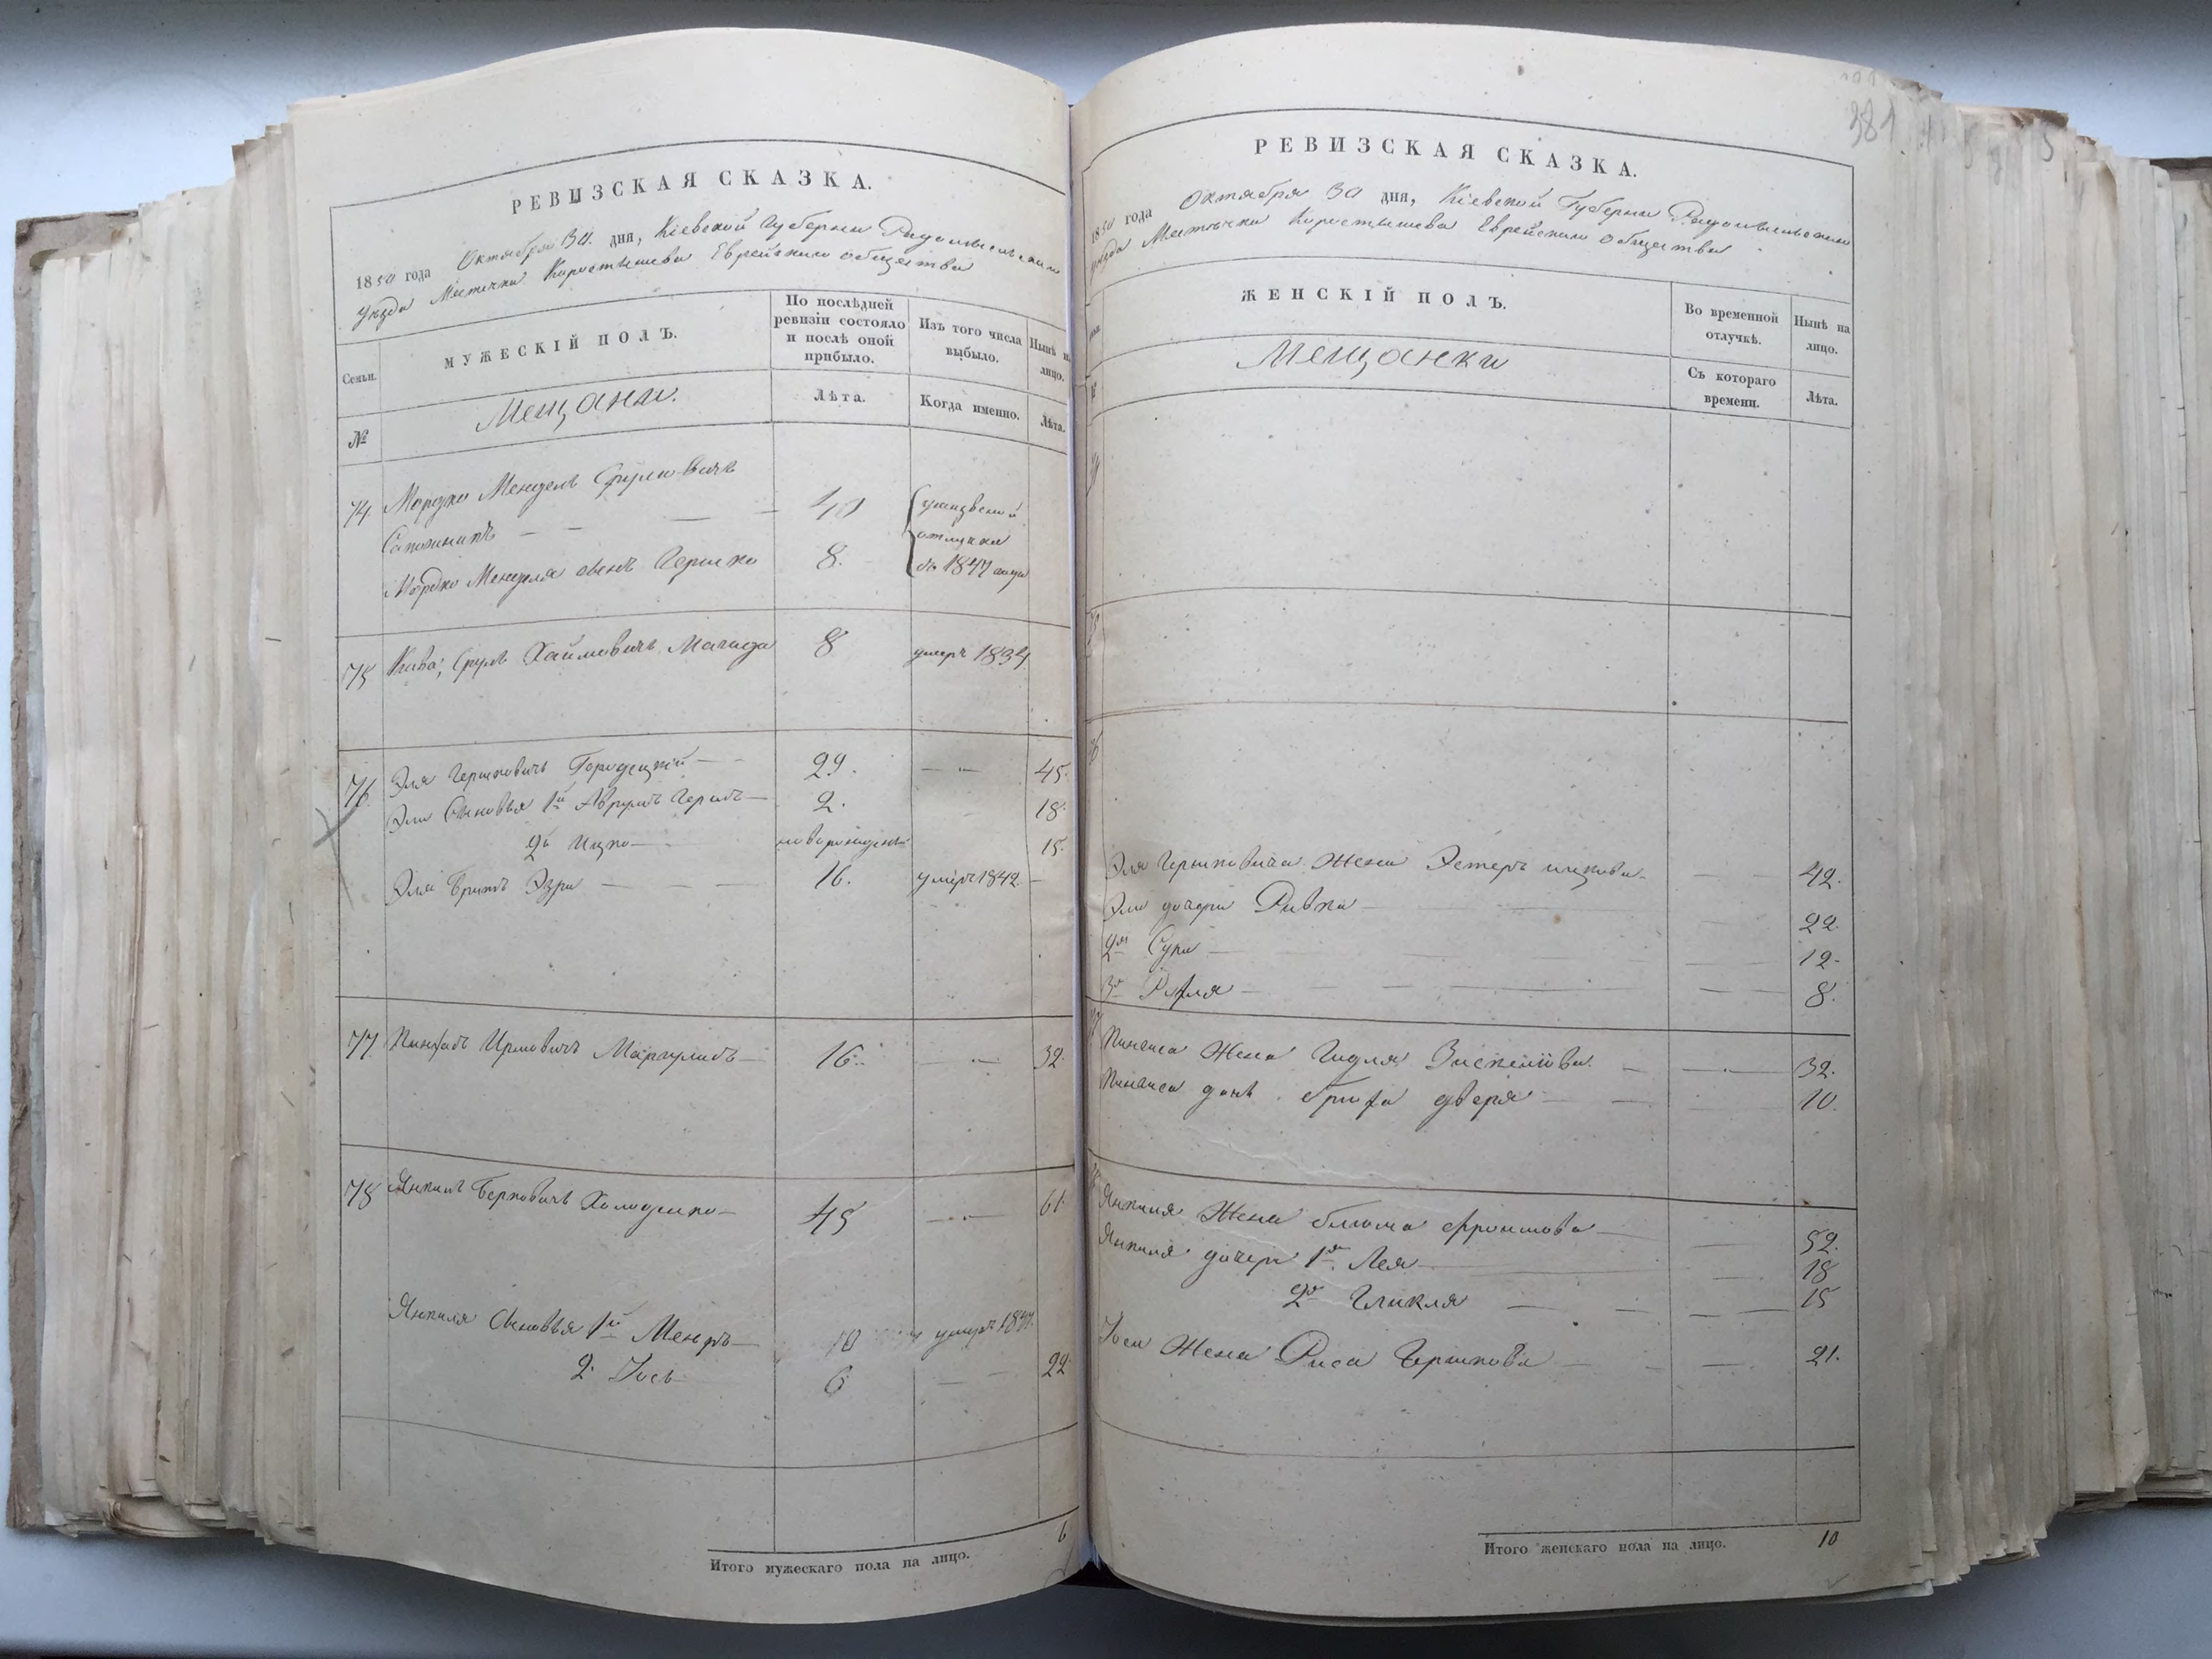 РЕВИЗСКАЯ СКАЗКА.
1850 года Октября 30. дня, Кіевской Губерніи Радомысльскаго
уезда Местечка Коростышева Еврейскаго общества
Семьи.
МУЖЕСКІЙ ПОЛЪ.
По послѣдней ревизіи состояло и послѣ оной прибыло.
Изъ того числа выбыло.
Нынѣ на лицо.
№
Мещане.
Лѣта.
Когда именно.
Лѣта.
74 Мордко Мендель Сруловичъ
Сапожникъ — — — — 40
Мордко Менделя сынъ Гершко 8.
отлучке
съ 1847 года
75 Кива, Сруль Хаймовичъ Магида 8 умеръ 1834
76 Эля Гершковичъ Городецкій — — 29. — 45.
Эли Сыновья 1й Аврумъ Гершъ — 2. 18.
2й Ицко — новорожденъ 15.
Эли братъ Эзри — — — 16. умеръ 1842. —
77 Пинхасъ Ирмовичъ Маргулисъ — 16. — 32.
78 Янкель Берковичъ Холоденко — 45 — 61.
Янкеля Сыновья 1й — 10 умеръ
2. Іось 6 — — 22
Итого мужескаго пола на лицо. 6
381
РЕВИЗСКАЯ СКАЗКА.
1850 года Октября 30 дня, Кіевской Губерніи Радомысльскаго
уезда Местечка Коростышева Еврейскаго общества
ЖЕНСКІЙ ПОЛЪ.
Во временной отлучкѣ.
Нынѣ на лицо.
Мещанки
Съ котораго времени.
Лѣта.
Эля Гершковича Жена Эстеръ Ицкова — — 42.
Эли дочери Ривка — — — 22.
2я Сура — — — 12.
3я Рейзля — — — 8.
Пинхаса Жена Гидля — — 32.
Пинхаса дочь двера — — 10.
Янкеля Жена Блюма Фроимова — — 52.
Янкеля дочери 1я Лея — — 18
2я Гликля — — — 15
Іося Жена Риса Гершкова — — — 21.
Итого женскаго пола на лицо. 10